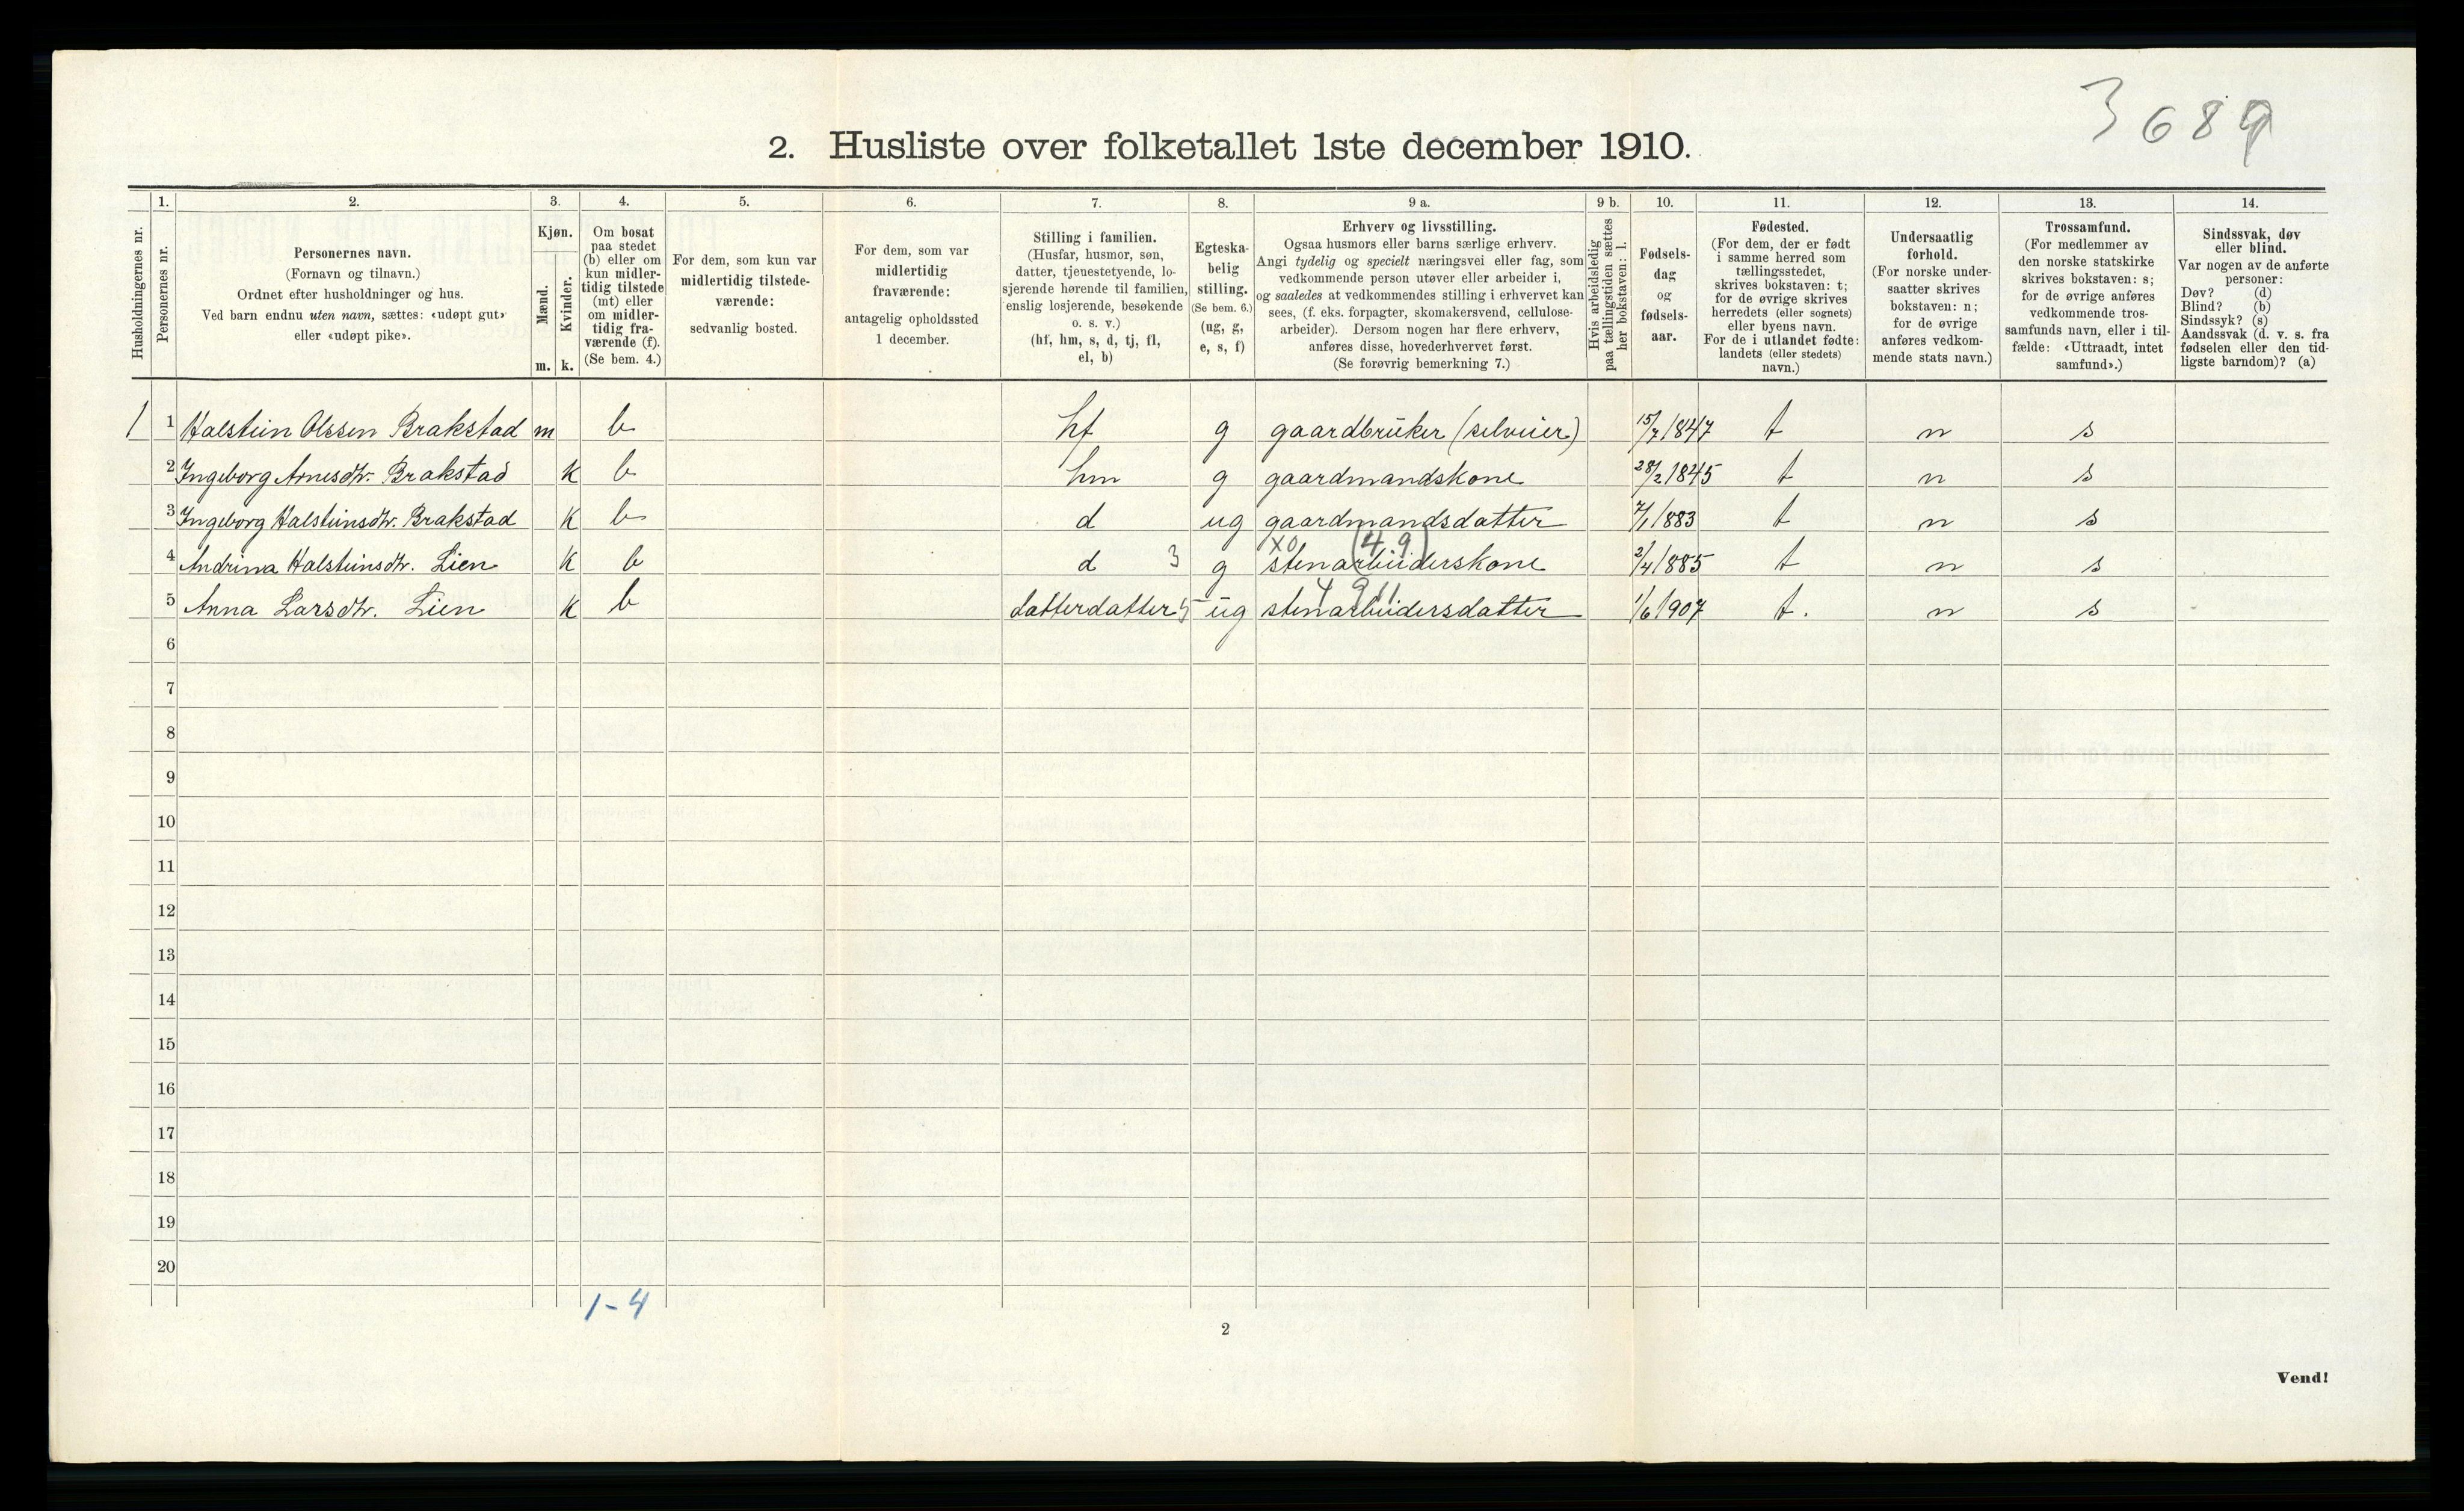 3 689
2. Husliste over folketallet 1ste december 1910.
Husholdningernes nr.
1.
Personernes nr.
2.
Personernes navn.
(Fornavn og tilnavn.)
Ordnet efter husholdninger og hus.
Ved barn endnu uten navn, sættes: «udøpt gut»
eller «udøpt pike».
3.
Kjøn.
Mænd.
Kvinder.
m. k.
4.
Om bosat
paa stedet
(b) eller om
kun midler-
tidig tilstede
(mt) eller
om midler-
tidig fra-
værende (f).
(Se bem. 4.)
5.
For dem, som kun var
midlertidig tilstede-
værende:
sedvanlig bosted.
6.
For dem, som var
midlertidig
fraværende:
antagelig opholdssted
1 december.
7.
Stilling i familien.
(Husfar, husmor, søn,
datter, tjenestetyende, lo-
sjerende hørende til familien,
enslig losjerende, besøkende
o. s. v.)
(hf, hm, s, d, tj, fl,
el, b)
8.
Egteska-
belig
stilling.
(Se bem. 6.)
(ug, g,
e, s, f)
9 a.
Erhverv og livsstilling.
Ogsaa husmors eller barns særlige erhverv.
Angi tydelig og specielt næringsvei eller fag, som
vedkommende person utøver eller arbeider i,
og saaledes at vedkommendes stilling i erhvervet kan
sees, (f. eks. forpagter, skomakersvend, cellulose-
arbeider). Dersom nogen har flere erhverv,
anføres disse, hovederhvervet først.
(Se forøvrig bemerkning 7.)
9 b.
Hvis arbeidsledig
paa tællingstiden sættes
her bokstaven: l.
10.
Fødsels-
dag
og
fødsels-
aar.
11.
Fødested.
(For dem, der er født
i samme herred som
tællingsstedet,
skrives bokstaven: t;
for de øvrige skrives
herredets (eller sognets)
eller byens navn.
For de i utlandet fødte:
landets (eller stedets)
navn.)
12.
Undersaatlig
forhold.
(For norske under-
saatter skrives
bokstaven: n;
for de øvrige
anføres vedkom-
mende stats navn.)
13.
Trossamfund.
(For medlemmer av
den norske statskirke
skrives bokstaven: s;
for de øvrige anføres
vedkommende tros-
samfunds navn, eller i til-
fælde: «Uttraadt, intet
samfund».)
14.
Sindssvak, døv
eller blind.
Var nogen av de anførte
personer:
Døv? (d)
Blind? (b)
Sindssyk? (s)
Aandssvak (d. v. s. fra
fødselen eller den tid-
ligste barndom)? (a)
1 1 Halstein Olssen Brakstad m b hf g gaardbrüker (selveier) 15/7 1847 t n s
2 Ingeborg Arnesdtr. Brakstad k b hm g gaardmandskone 28/2 1845 t n s
3 Ingeborg Halsteinsdtr. Brakstad k b d ug gaardmandsdatter 7/1 1883 t n s
X0 (49)
4 Andrina Halsteinsdtr. Lien k b d 3 g stenarbeiderskone 2/4 1885 t n s
4 9 11
5 Anna Larsdtr. Lien k b datterdatter 5 ug stenarbeidersdatter 1/6 1907 t. n s
6
7
8
9
10
11
12
13
14
15
16
17
18
19
20
1-4
2
Vend!